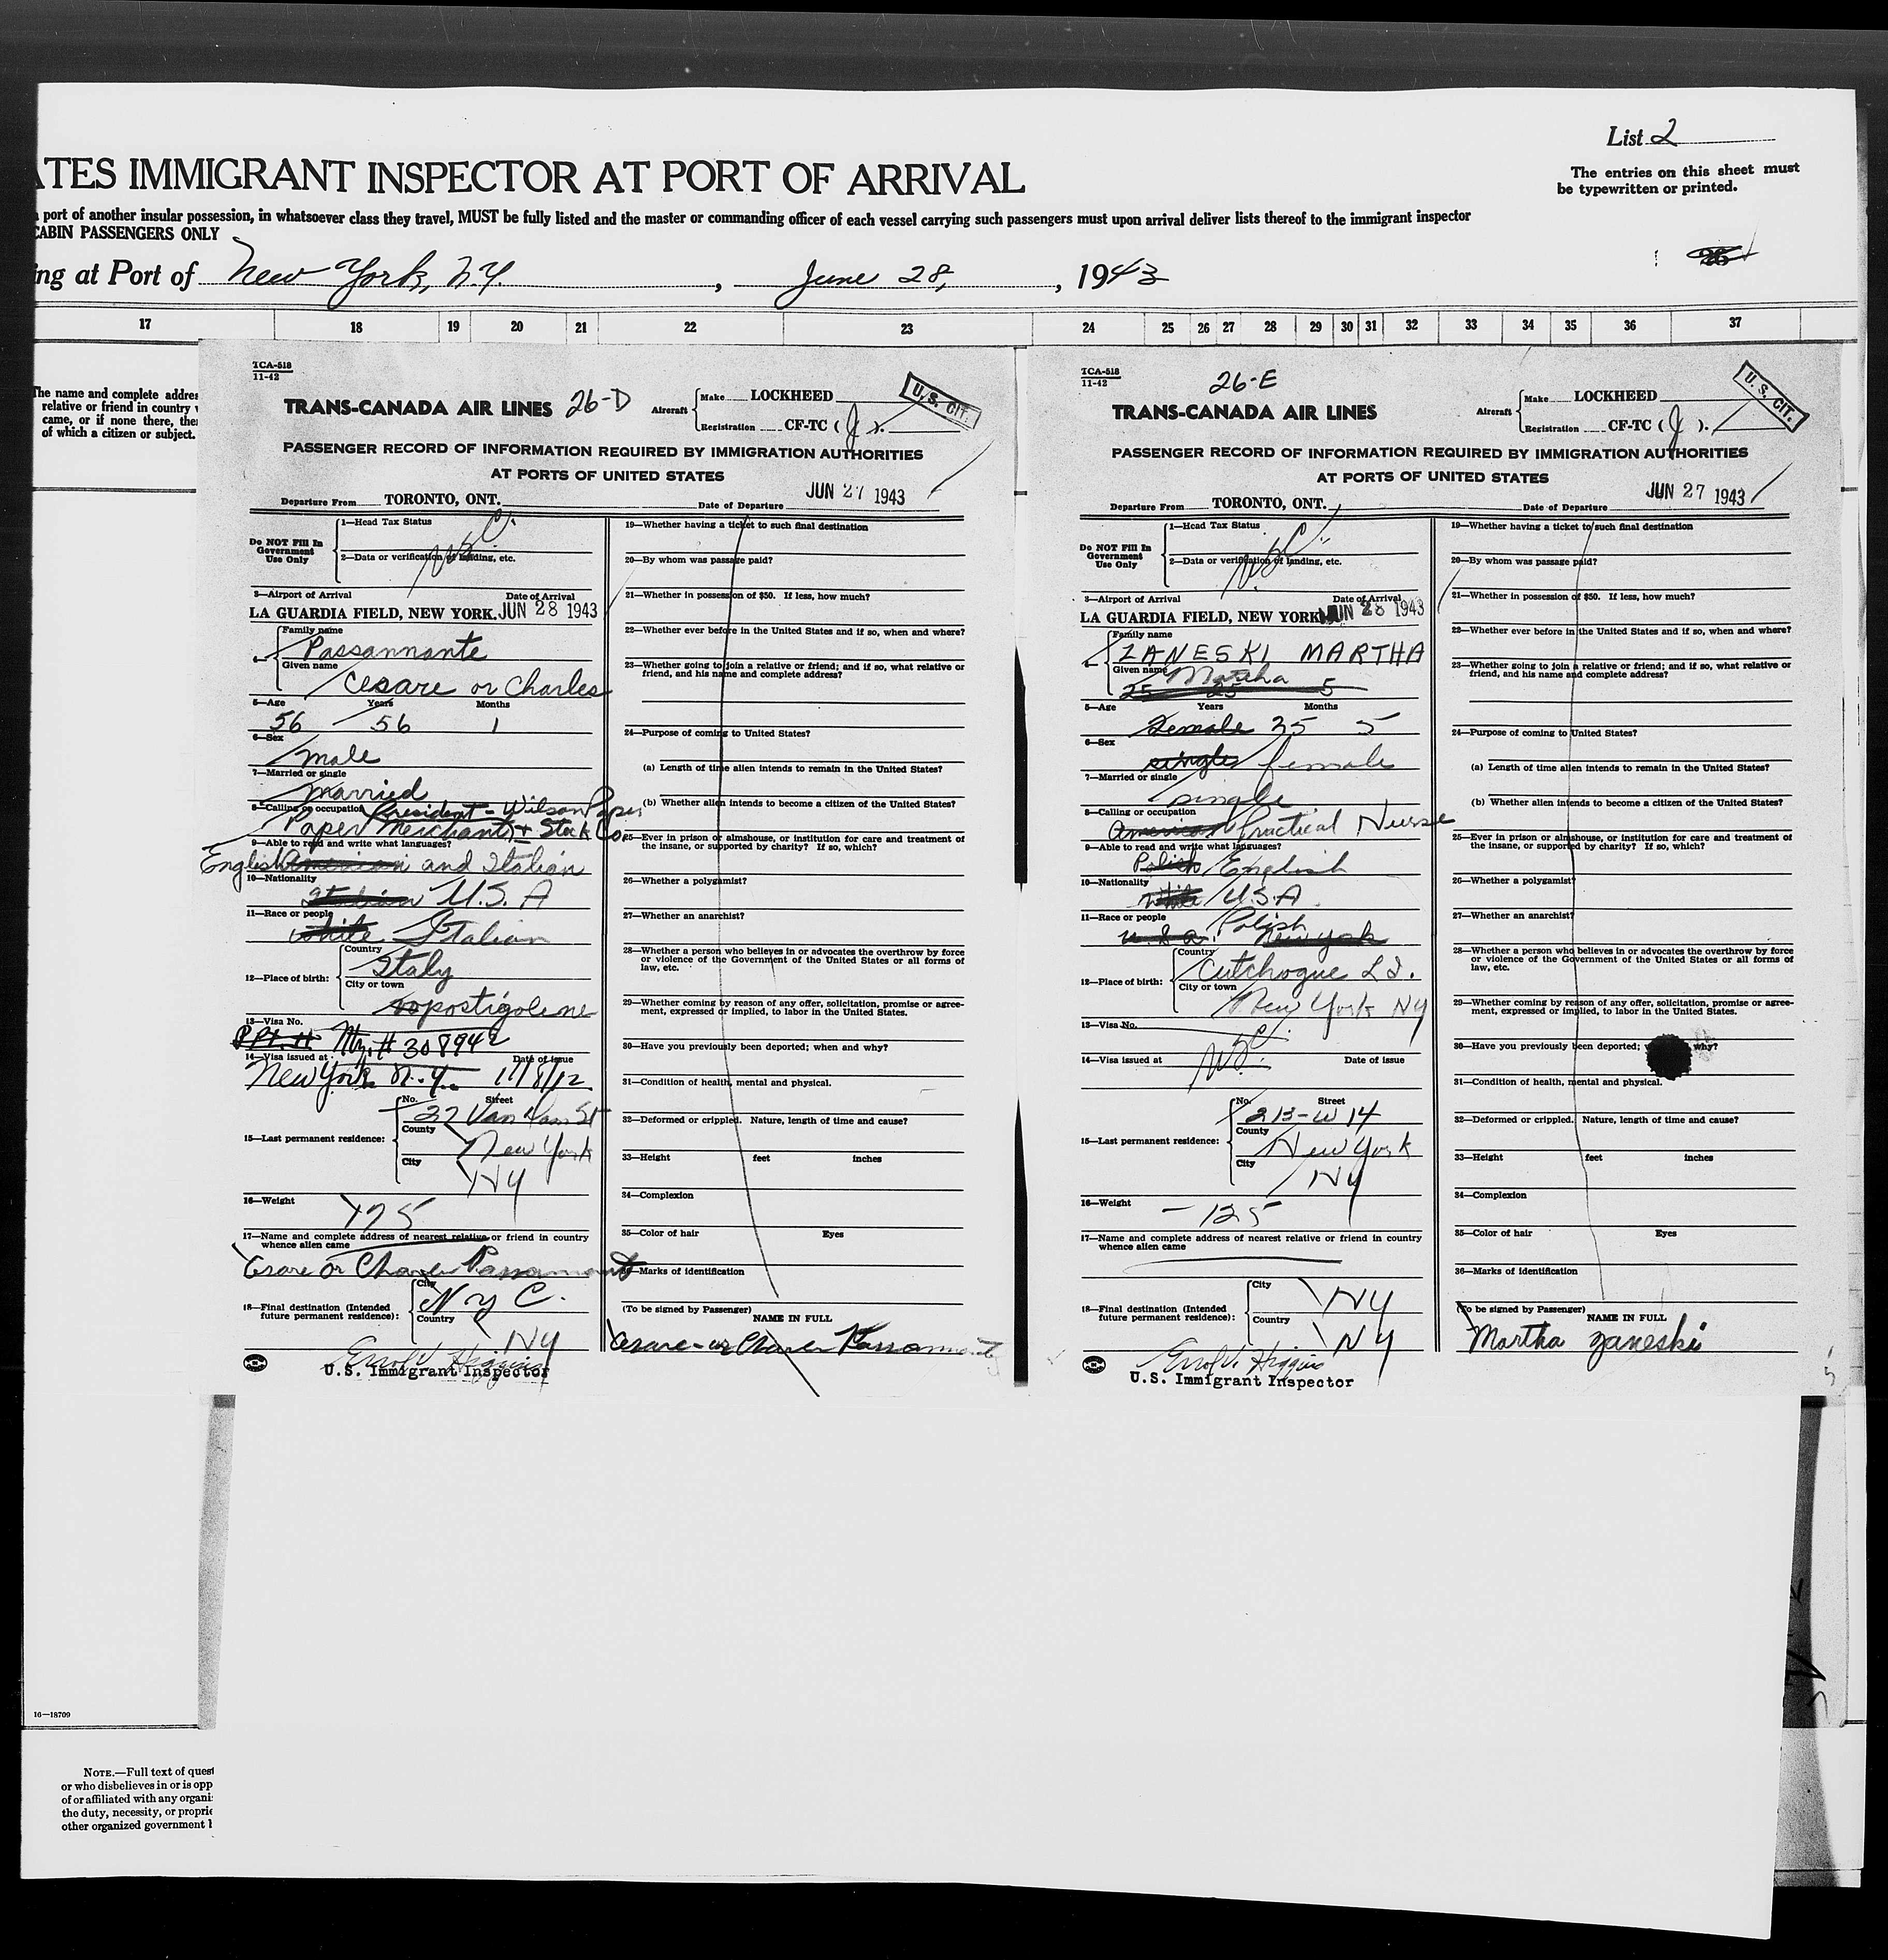 List 2
ATES IMMIGRANT INSPECTOR AT PORT OF ARRIVAL
The entries on this sheet must
be typewritten or printed.
port of another insular possession, in whatsoever class they travel, MUST be fully listed and the master or commanding officer of each vessel carrying such passengers must upon arrival deliver lists thereof to the immigrant inspector
CABIN PASSENGERS ONLY
ing at Port of New York, N.Y. , June 28, , 1943
17 18 19 20 21 22 23 24 25 26 27 28 29 30 31 32 33 34 35 36 37
The name and complete addre
relative or friend in country
came, or if none there, the
of which a citizen or subject.
TCA-518
11-42
TRANS-CANADA AIR LINES 26-D
Aircraft Make LOCKHEED
Registration CF-TC (J).
U.S. CIT.
PASSENGER RECORD OF INFORMATION REQUIRED BY IMMIGRATION AUTHORITIES
AT PORTS OF UNITED STATES
Departure From TORONTO, ONT. Date of Departure JUN 27 1943
Do NOT Fill In
Government
Use Only
1—Head Tax Status
2—Data or verification of landing, etc.
3—Airport of Arrival Date of Arrival
LA GUARDIA FIELD, NEW YORK. JUN 28 1943
4— Family name
Passannante
Given name
Cesare or Charles
5—Age Years Months
56 56 1
6—Sex
male
7—Married or single
married
8—Calling or occupation President - Wilson Paper
Paper Merchant & Stock Co.
9—Able to read and write what languages?
English American and Italian
10—Nationality
Italian U.S.A
11—Race or people
white Italian
12—Place of birth: Country
Italy
City or town
postigolene
13—Visa No.
Ppt. # # 308942
14—Visa issued at Date of issue
New York N.Y.
15—Last permanent residence: No. Street
Van Dam St
County
New York
City
NY
16—Weight
175
17—Name and complete address of nearest relative or friend in country
whence alien came
Cesare or Charles Passannante
18—Final destination (Intended
future permanent residence): City
N Y C.
Country
NY
Errol V. Higgins
U.S. Immigrant Inspector
19—Whether having a ticket to such final destination
20—By whom was passage paid?
21—Whether in possession of $50. If less, how much?
22—Whether ever before in the United States and if so, when and where?
23—Whether going to join a relative or friend; and if so, what relative or
friend, and his name and complete address?
24—Purpose of coming to United States?
(a) Length of time alien intends to remain in the United States?
(b) Whether alien intends to become a citizen of the United States?
25—Ever in prison or almshouse, or institution for care and treatment of
the insane, or supported by charity? If so, which?
26—Whether a polygamist?
27—Whether an anarchist?
28—Whether a person who believes in or advocates the overthrow by force
or violence of the Government of the United States or all forms of
law, etc.
29—Whether coming by reason of any offer, solicitation, promise or agree-
ment, expressed or implied, to labor in the United States.
30—Have you previously been deported; when and why?
31—Condition of health, mental and physical.
32—Deformed or crippled. Nature, length of time and cause?
33—Height feet inches
34—Complexion
35—Color of hair Eyes
36—Marks of identification
(To be signed by Passenger)
NAME IN FULL
Cesare or Charles Passannante
TCA-518
11-42
26-E
TRANS-CANADA AIR LINES
Aircraft Make LOCKHEED
Registration CF-TC (J).
U.S. CIT.
PASSENGER RECORD OF INFORMATION REQUIRED BY IMMIGRATION AUTHORITIES
AT PORTS OF UNITED STATES
Departure From TORONTO, ONT. Date of Departure JUN 27 1943
Do NOT Fill In
Government
Use Only
1—Head Tax Status
2—Data or verification of landing, etc.
3—Airport of Arrival Date of Arrival
LA GUARDIA FIELD, NEW YORK JUN 28 1943
4— Family name
ZANESKI MARTHA
Given name Martha
25 25 5
5—Age Years Months
female 25 5
6—Sex
single female
7—Married or single
single
8—Calling or occupation
American Practical Nurse
9—Able to read and write what languages?
Polish English
10—Nationality
white U.S.A.
11—Race or people Polish
U.S.A. New York
12—Place of birth: Country
Cutchogue L.I.
City or town
New York NY
13—Visa No.
14—Visa issued at Date of issue
15—Last permanent residence: No. Street
213-W 14
County
New York
City
NY
16—Weight
- 125
17—Name and complete address of nearest relative or friend in country
whence alien came
18—Final destination (Intended
future permanent residence): City
NY
Country
NY
Errol V. Higgins
U.S. Immigrant Inspector
19—Whether having a ticket to such final destination
20—By whom was passage paid?
21—Whether in possession of $50. If less, how much?
22—Whether ever before in the United States and if so, when and where?
23—Whether going to join a relative or friend; and if so, what relative or
friend, and his name and complete address?
24—Purpose of coming to United States?
(a) Length of time alien intends to remain in the United States?
(b) Whether alien intends to become a citizen of the United States?
25—Ever in prison or almshouse, or institution for care and treatment of
the insane, or supported by charity? If so, which?
26—Whether a polygamist?
27—Whether an anarchist?
28—Whether a person who believes in or advocates the overthrow by force
or violence of the Government of the United States or all forms of
law, etc.
29—Whether coming by reason of any offer, solicitation, promise or agree-
ment, expressed or implied, to labor in the United States.
30—Have you previously been deported; why?
31—Condition of health, mental and physical.
32—Deformed or crippled. Nature, length of time and cause?
33—Height feet inches
34—Complexion
35—Color of hair Eyes
36—Marks of identification
(To be signed by Passenger)
NAME IN FULL
Martha Zaneski
16—18709
NOTE.—Full text of quest
or who disbelieves in or is opp
of or affiliated with any organi
the duty, necessity, or proprie
other organized government